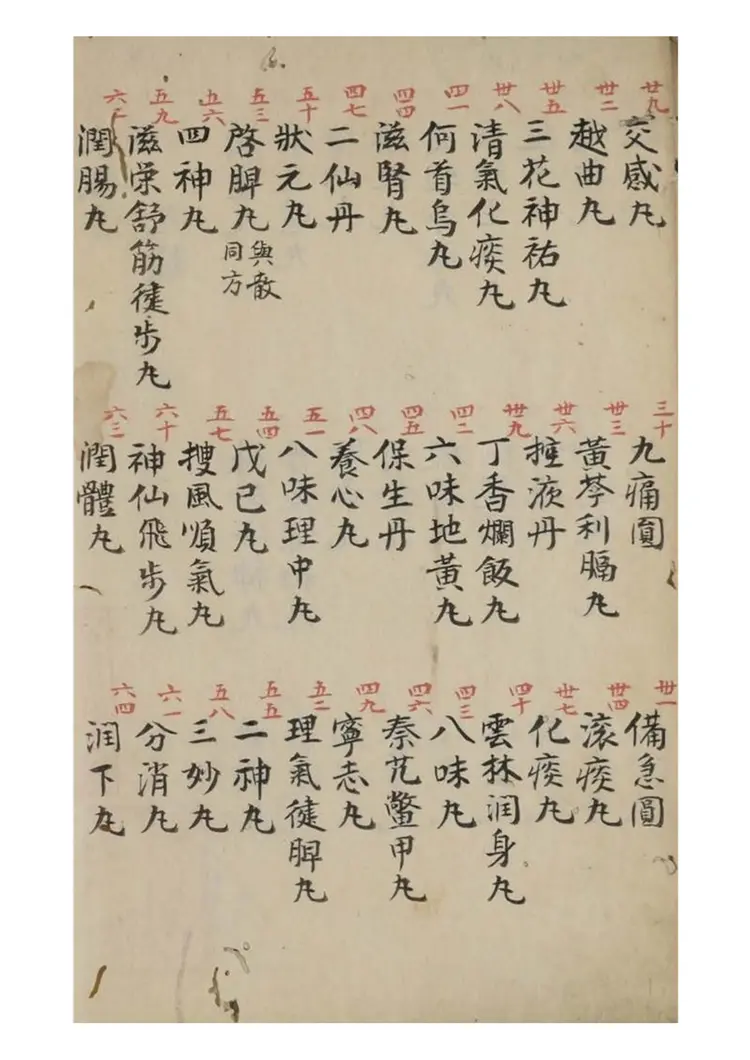 廿九 交感丸
三十 九痛圓
卅一 備急圓
卅二 越曲丸
卅三 黃芩利膈丸
卅四 滚痰丸
卅五 三花神祐丸
卅六 控涎丹
卅七 化痰丸
卅八 清氣化痰丸
卅九 丁香爛飯丸
四十 雲林润身丸
四一 何首烏丸
四二 六味地黃丸
四三 八味丸
四四 滋腎丸
四五 保生丹
四六 秦艽鱉甲丸
四七 二仙丹
四八 養心丸
四九 寧志丸
五十 狀元丸
五一 八味理中丸
五二 理氣徤脾丸
五三 啓脾丸 與散同方
五四 戊己丸
五五 二神丸
五六 四神丸
五七 搜風順氣丸
五八 三妙丸
五九 滋荣舒筋徤步丸
六十 神仙飛步丸
六一 分消丸
六二 潤腸丸
六三 潤體丸
六四 润下丸